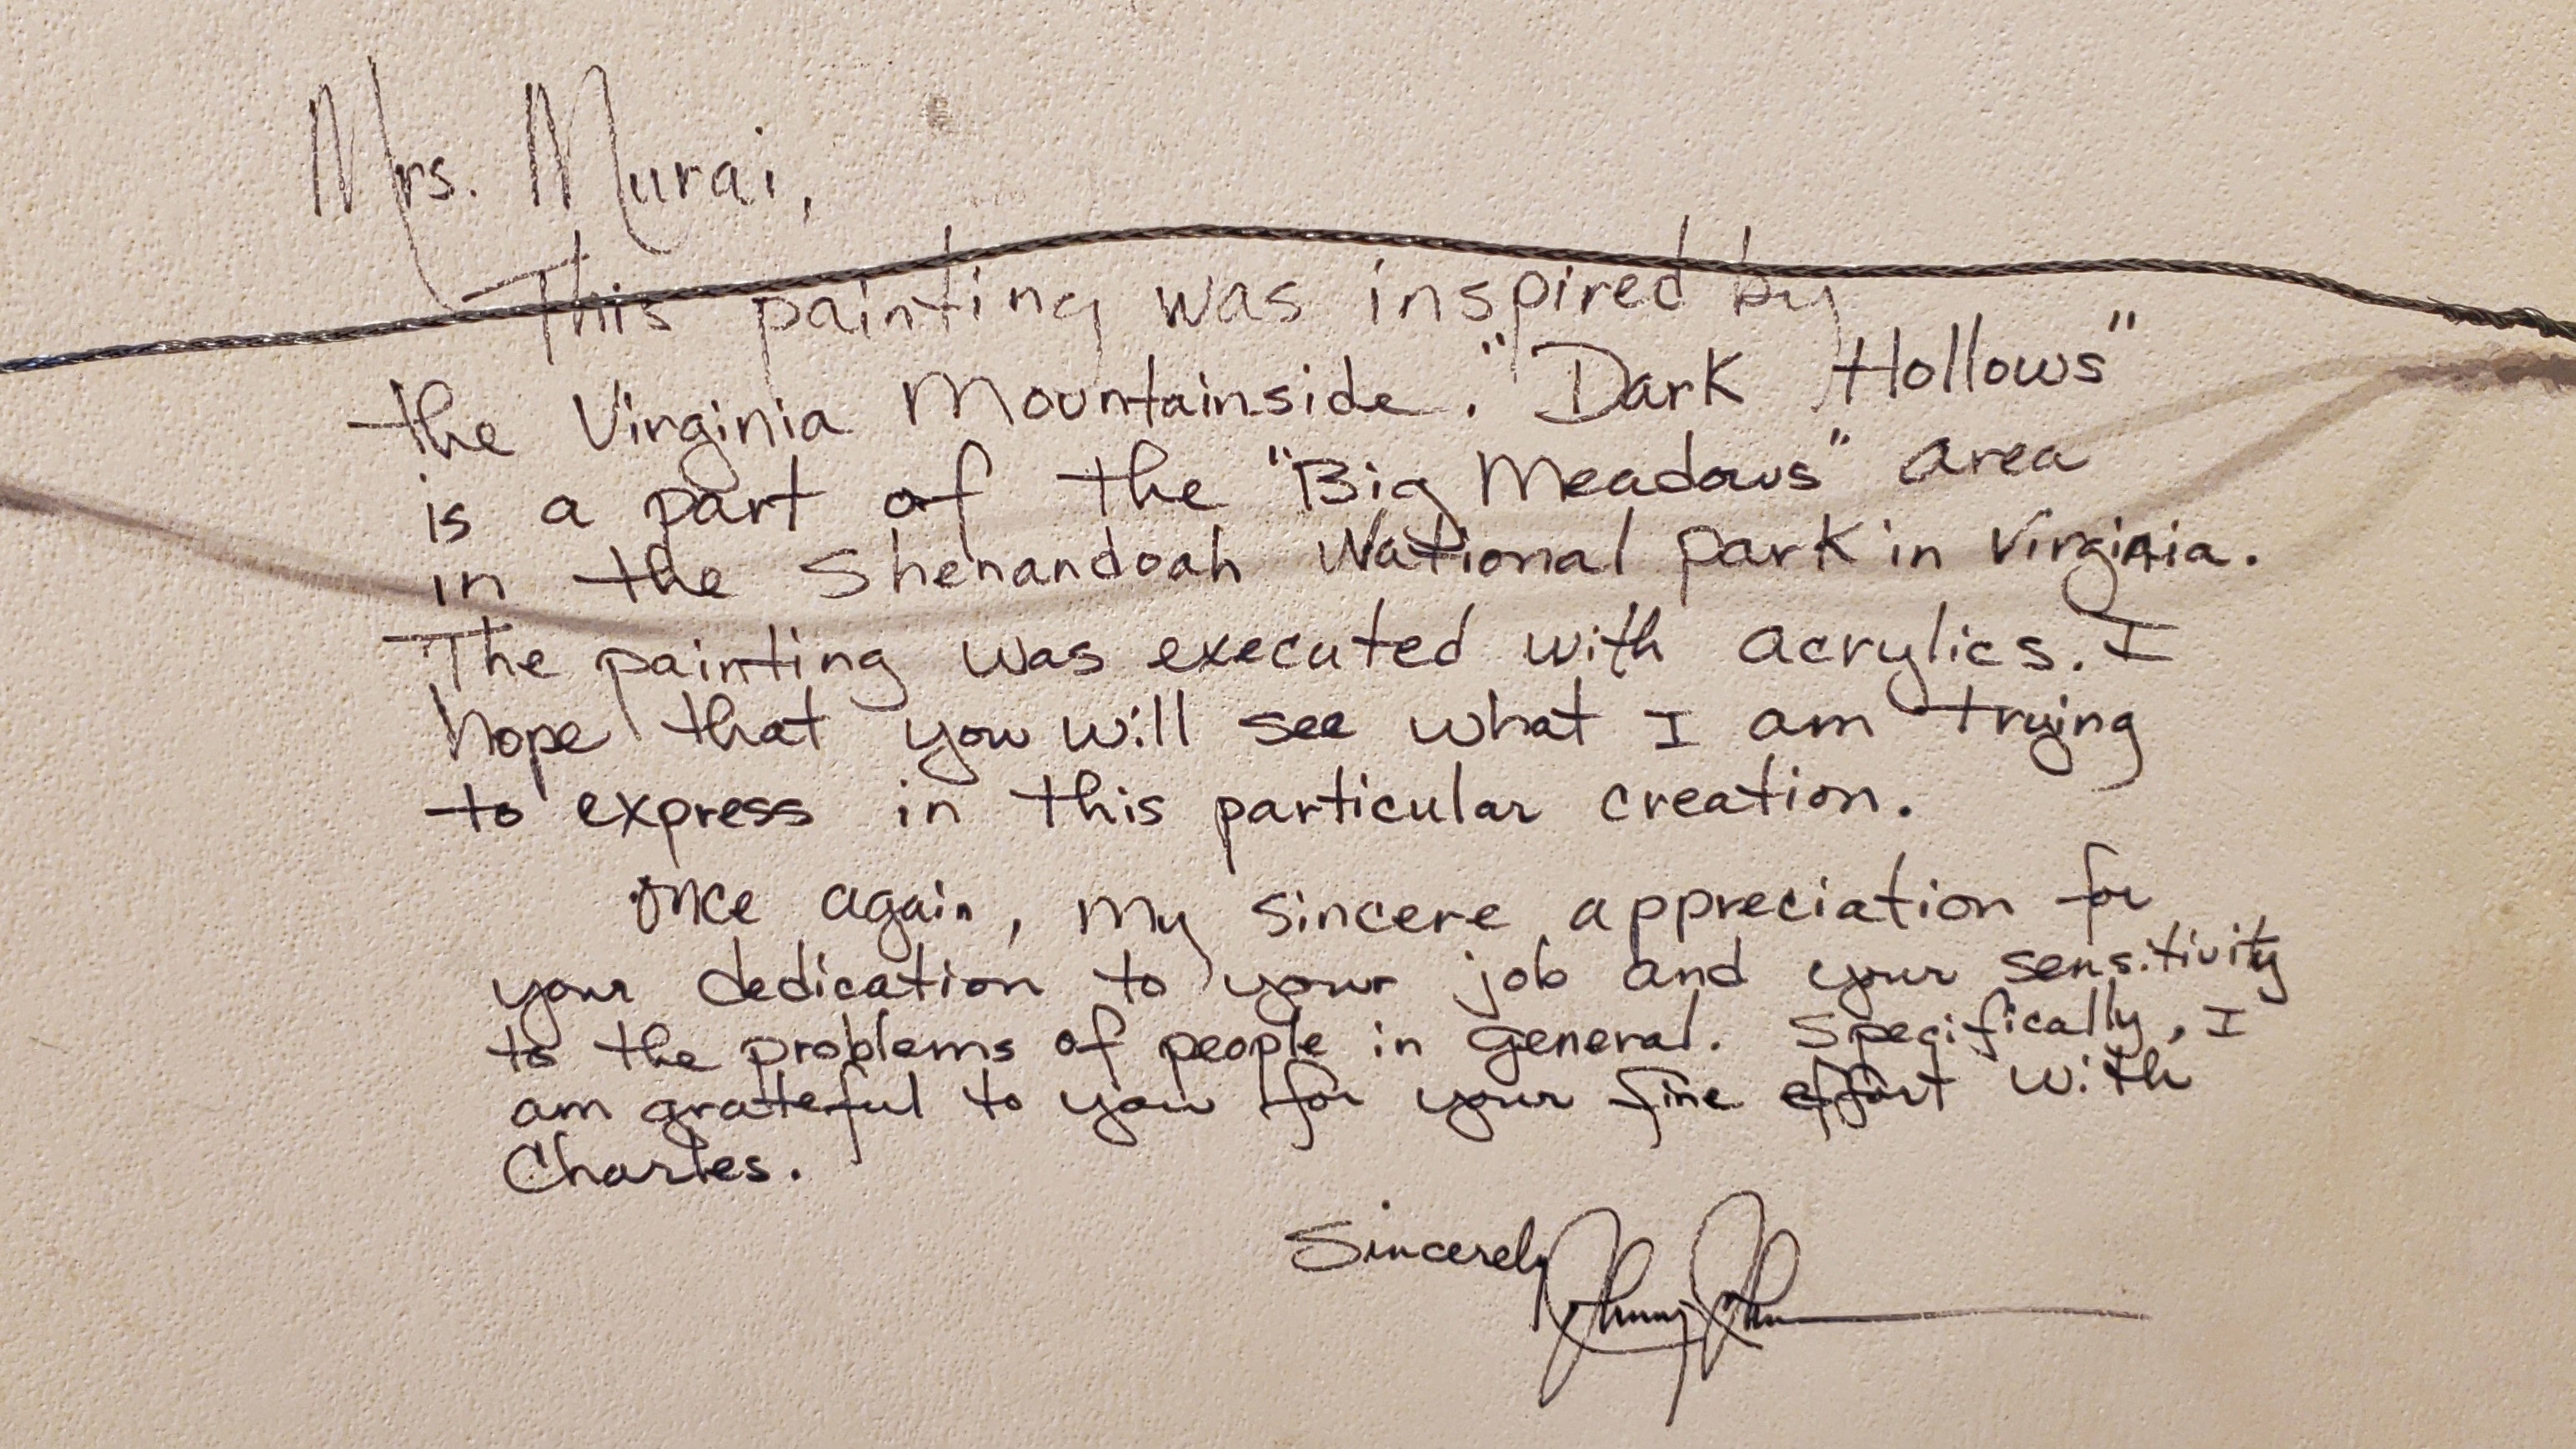 Mrs. Murai,
This painting was inspired by
the Virginia Mountainside. "Dark Hollows"
is a part of the "Big Meadows" area
in the Shenandoah National park in Virginia.
The painting was executed with acrylics. I
hope that you will see what I am trying
to express in this particular creation.
Once again, my sincere appreciation for
your dedication to your job and your sensitivity
to the problems of people in general. Specifically, I
am grateful to you for your fine effort with
Charles.
Sincerely
Johnny